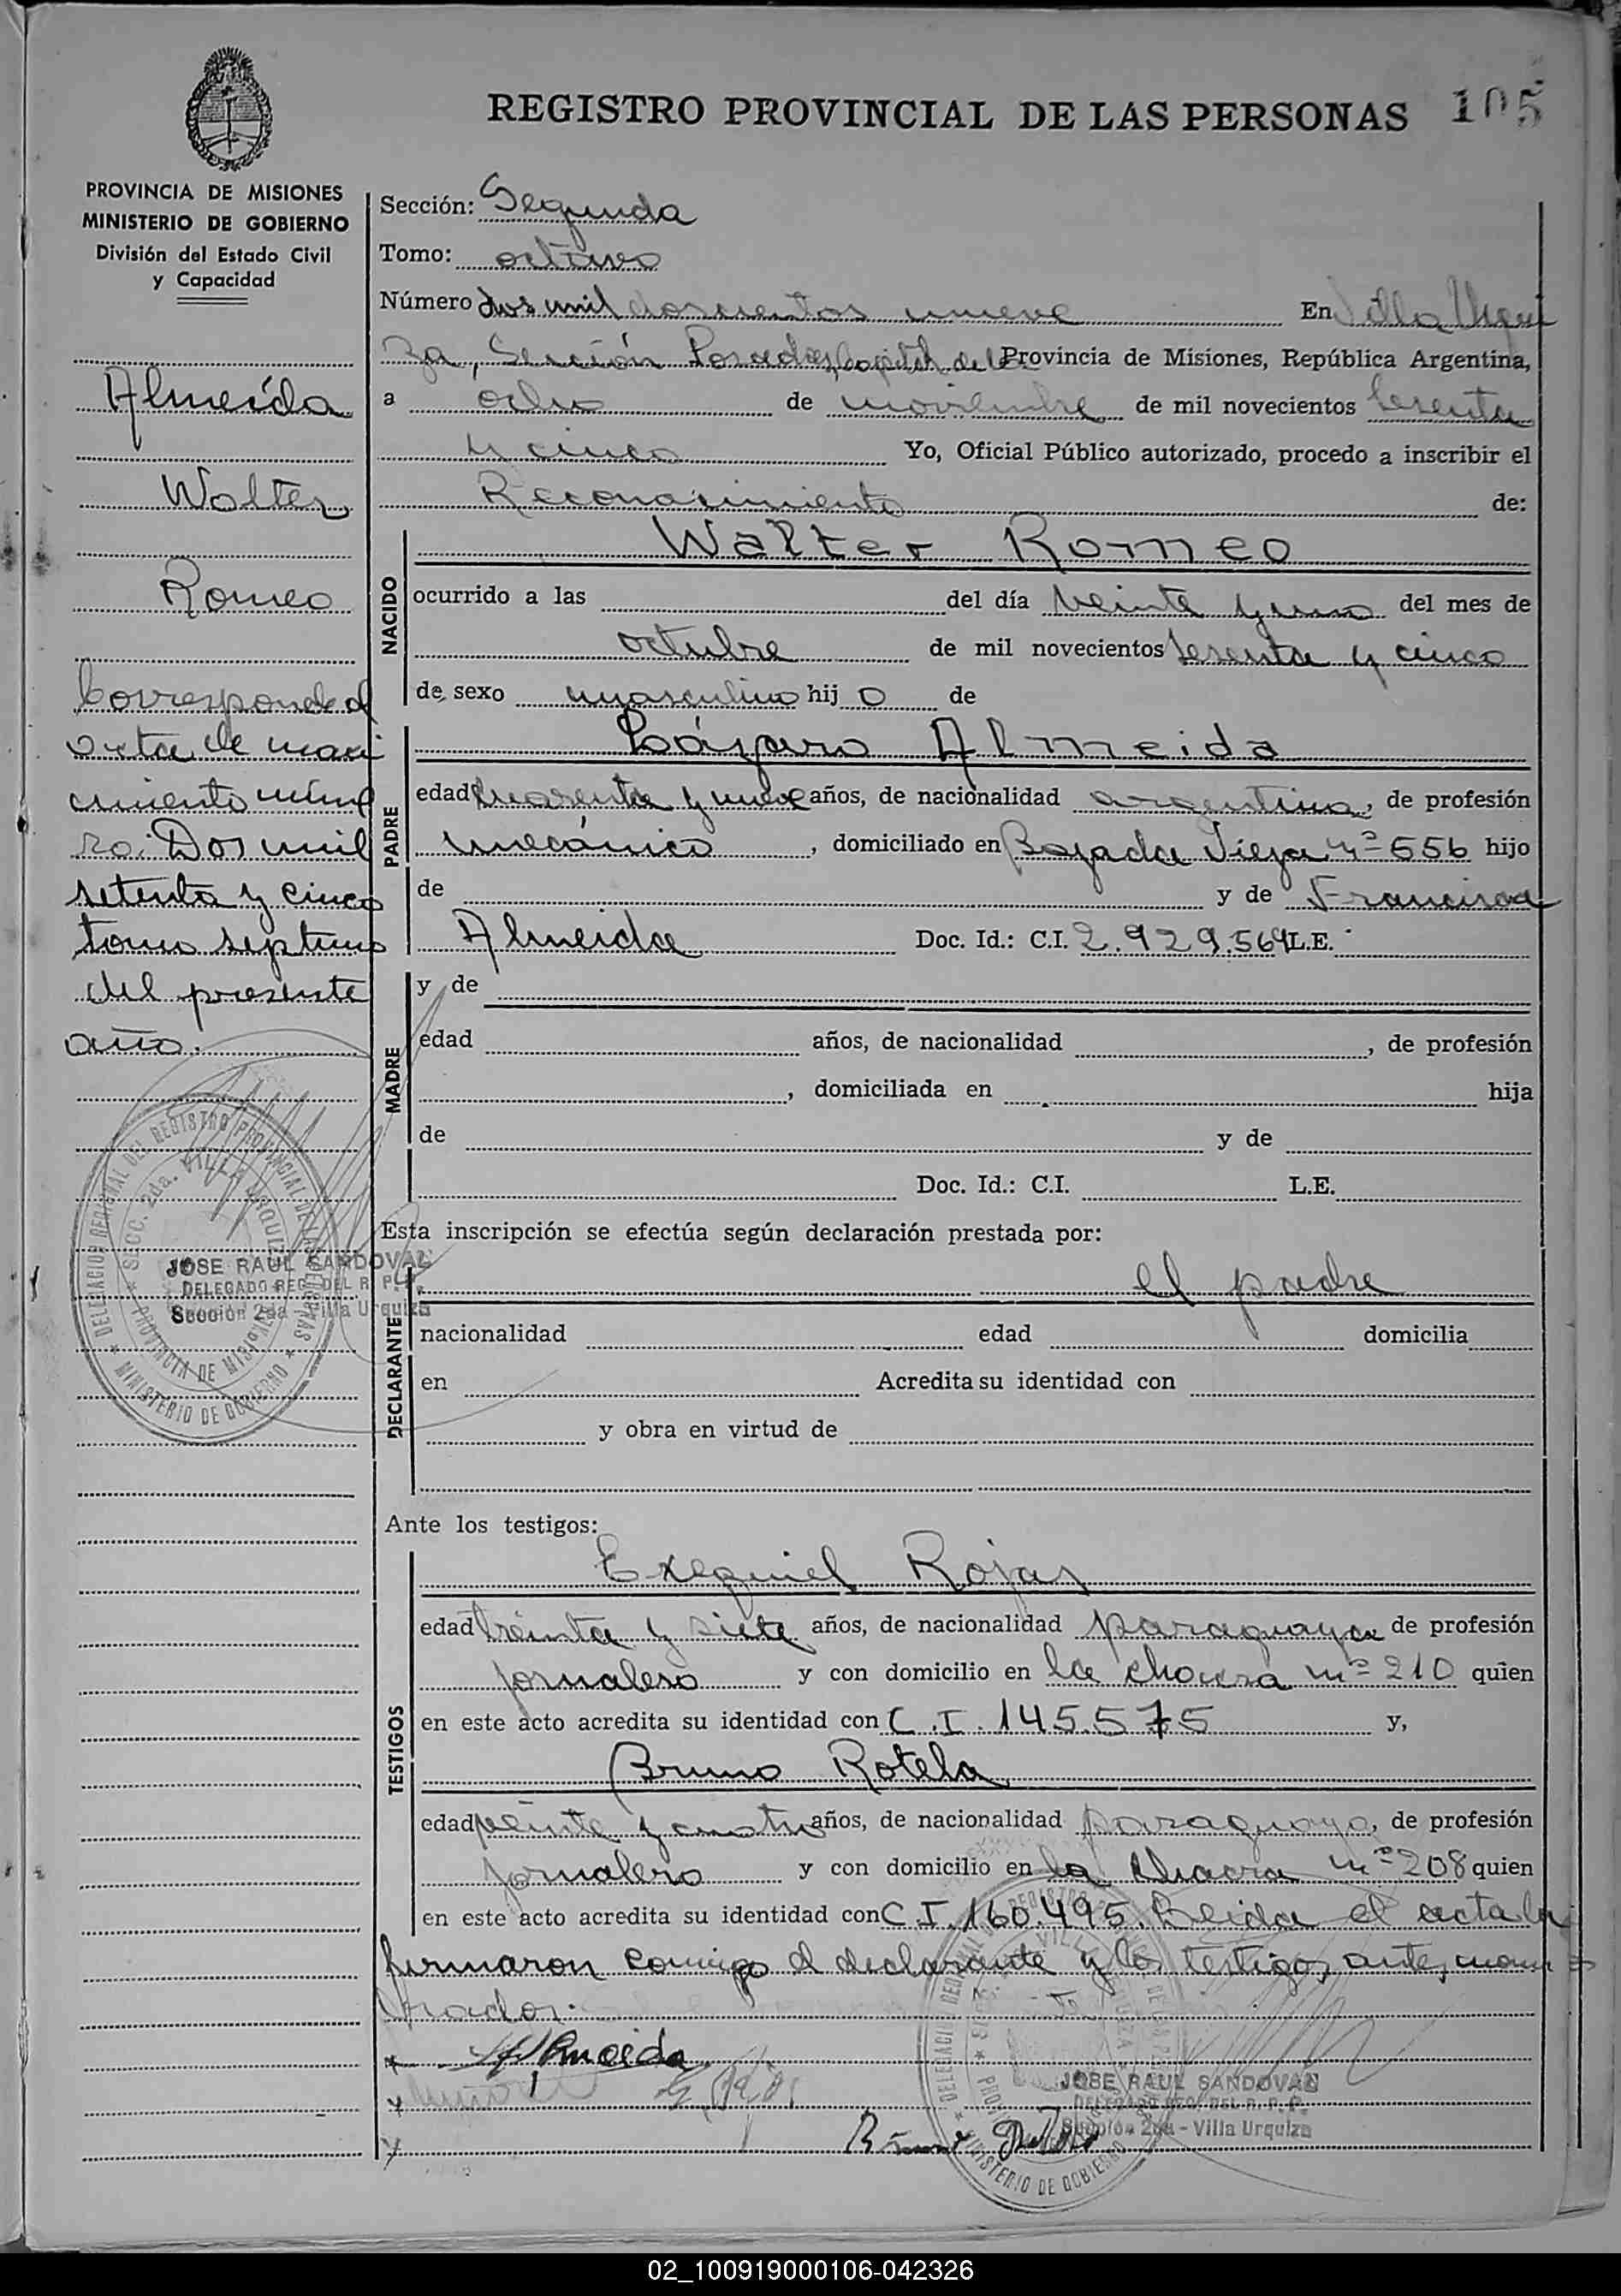 REGISTRO PROVINCIAL DE LAS PERSONAS 105
PROVINCIA DE MISIONES
MINISTERIO DE GOBIERNO
División del Estado Civil
y Capacidad
Almeída
Walter
Romeo
Corresponde al
acta de naci
miento núme
ro: Dos mil
setenta y cinco
tomo septimo
del presente
año.
Sección: Segunda
Tomo: octavo
Número dos mil doscientos nueve En Villa Urqui
za, Sección Posadas, Capital de la Provincia de Misiones, República Argentina,
a ocho de noviembre de mil novecientos sesenta
y cinco Yo, Oficial Público autorizado, procedo a inscribir el
Reconocimiento de:
NACIDO
Walter Romeo
ocurrido a las del día veinte y uno del mes de
octubre de mil novecientos sesenta y cinco
de sexo masculino hij o de
PADRE
Lázaro Almeida
edad cuarenta y nueve años, de nacionalidad argentina, de profesión
mecánico, domiciliado en Bajada Vieja nº 556 hijo
de y de Francisca
Almeida Doc. Id.: C.I. 2.929.564 L.E.
MADRE
y de
edad años, de nacionalidad , de profesión
, domiciliada en hija
de y de
Doc. Id.: C.I. L.E.
Esta inscripción se efectúa según declaración prestada por:
DECLARANTE
el padre
nacionalidad edad domicilia
en Acredita su identidad con
y obra en virtud de
DELEGACION REGIONAL DEL REGISTRO PROVINCIAL DE LAS PERSONAS
SECC. 2da. VILLA URQUIZA
PROVINCIA DE MISIONES
MINISTERIO DE GOBIERNO
JOSE RAUL SANDOVAL
DELEGADO REG. DEL R. P. P.
Sección 2da - Villa Urquiza
Ante los testigos:
TESTIGOS
Exequiel Rojas
edad treinta y siete años, de nacionalidad paraguaya de profesión
jornalero y con domicilio en la chacra nº 210 quien
en este acto acredita su identidad con C.I. 145.575 y,
Bruno Rotela
edad veinte y cuatro años, de nacionalidad paraguaya, de profesión
jornalero y con domicilio en la chacra nº 208 quien
en este acto acredita su identidad con C.I. 160.495. Leida el acta la
firmaron conmigo el declarante y los testigos antes, nom
brados.
Almeida
JOSE RAUL SANDOVAL
DELEGADO REG. DEL R. P. P.
Sección 2da - Villa Urquiza
MINISTERIO DE GOBIERNO
02_100919000106-042326